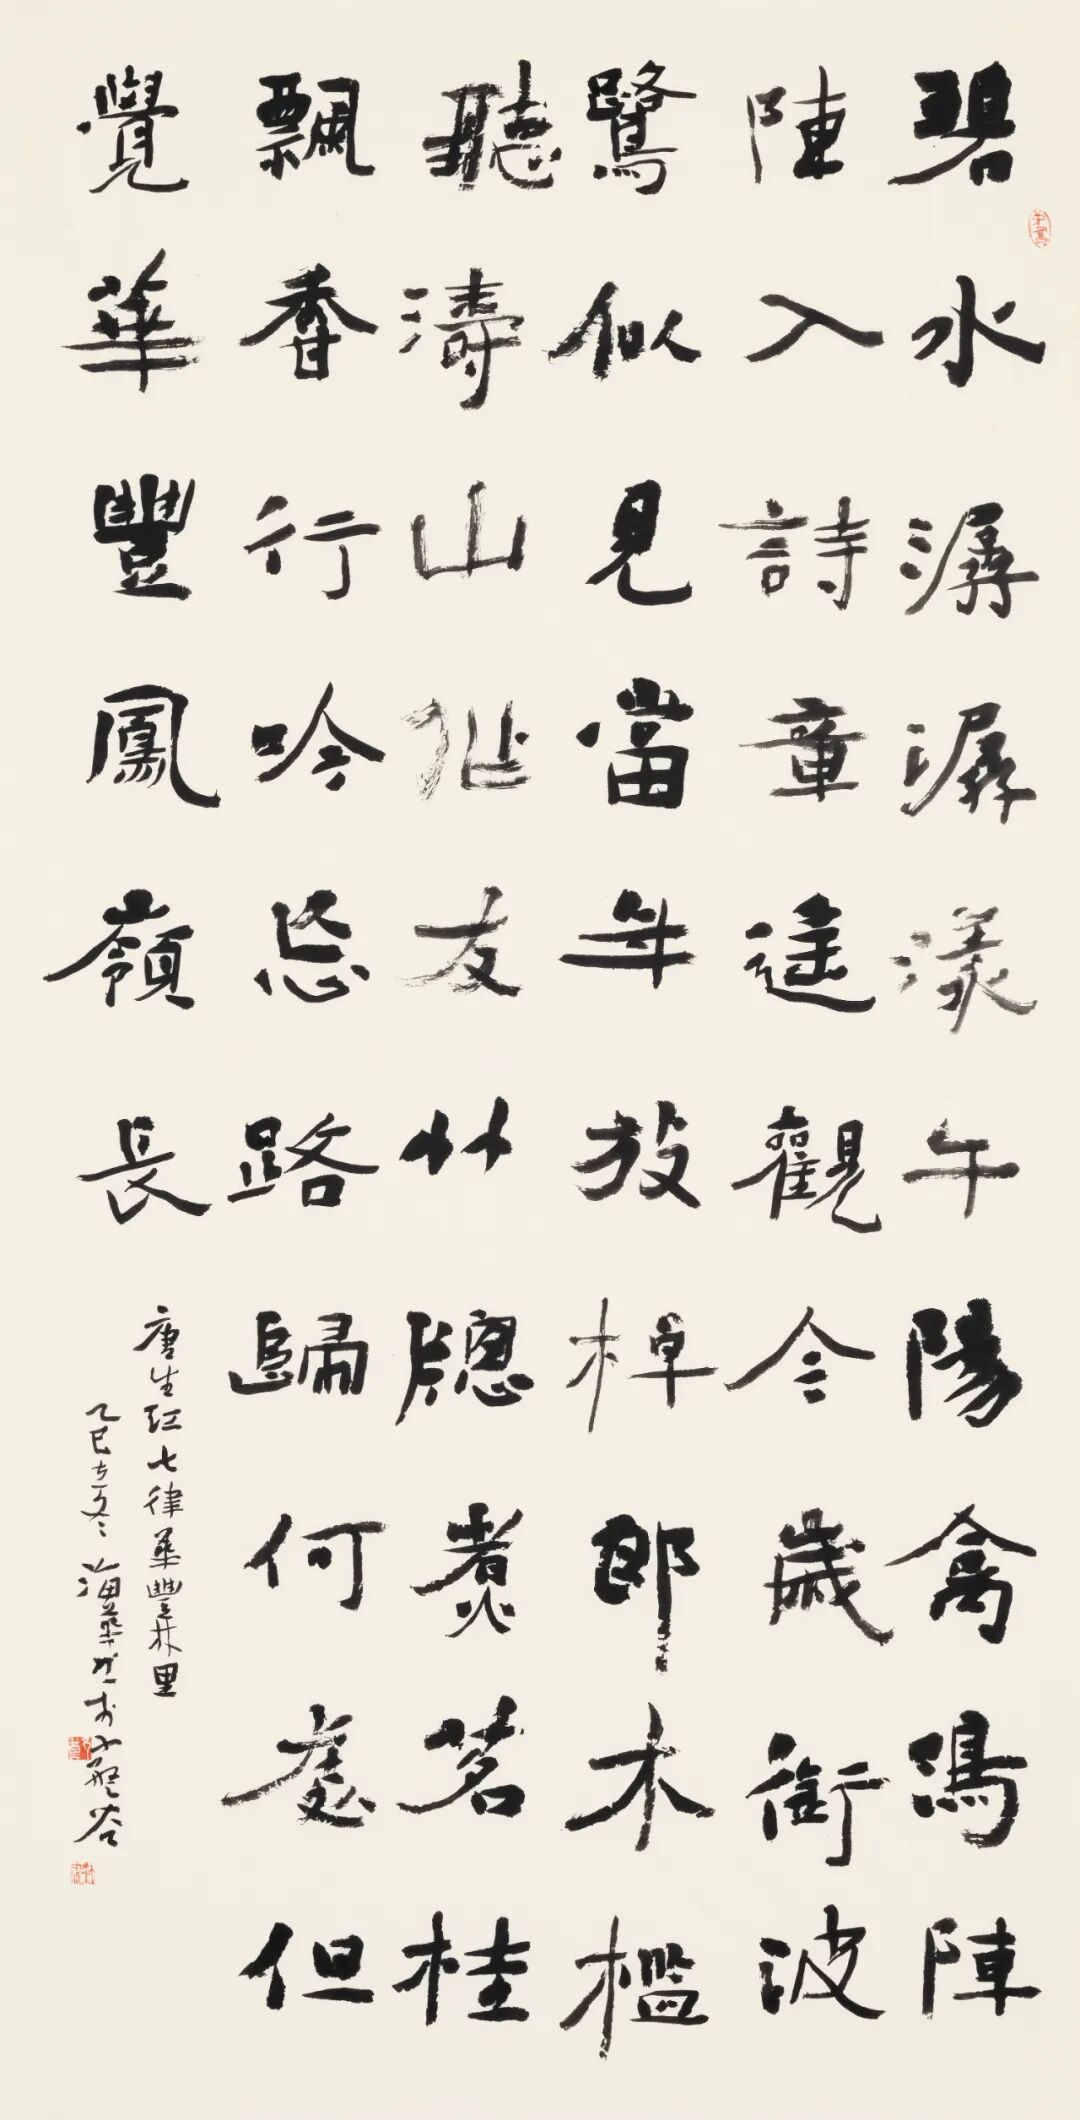 碧水潺潺漾午陽禽鳴陣
陣入詩章遥觀今歲銜波
鷺似見當年放棹郎木檻
聽濤山作友竹牕煮茗桂
飄香行吟忘路歸何處但
覺華豐鳳嶺長
唐生红七律華豐林里
乙巳立冬海華書於谷